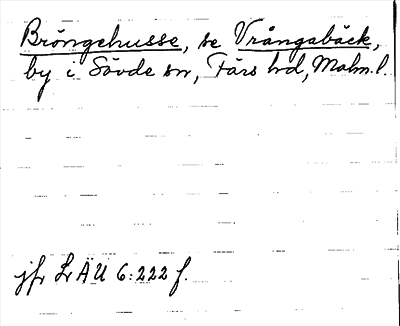 Bröngehusse, se Vrångabäck,
by i Sövde sn, Färs hd, Malm. l.
jfr Lr ÄU 6:222 f.